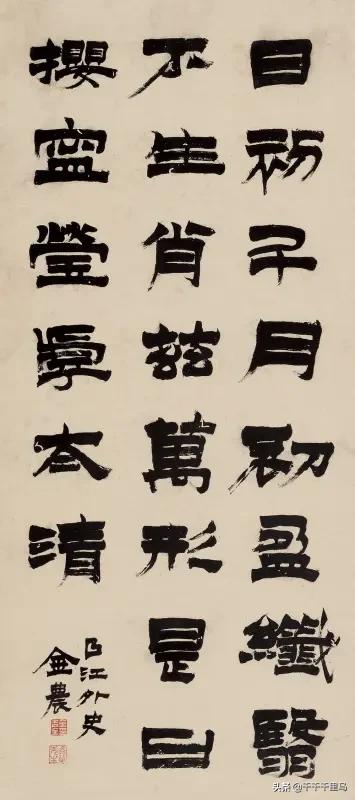 日初升月初盈纖翳
不生肖茲萬形是曰
攖寍瑩乎太清
曲江外史
金農
头条 @千千千里马